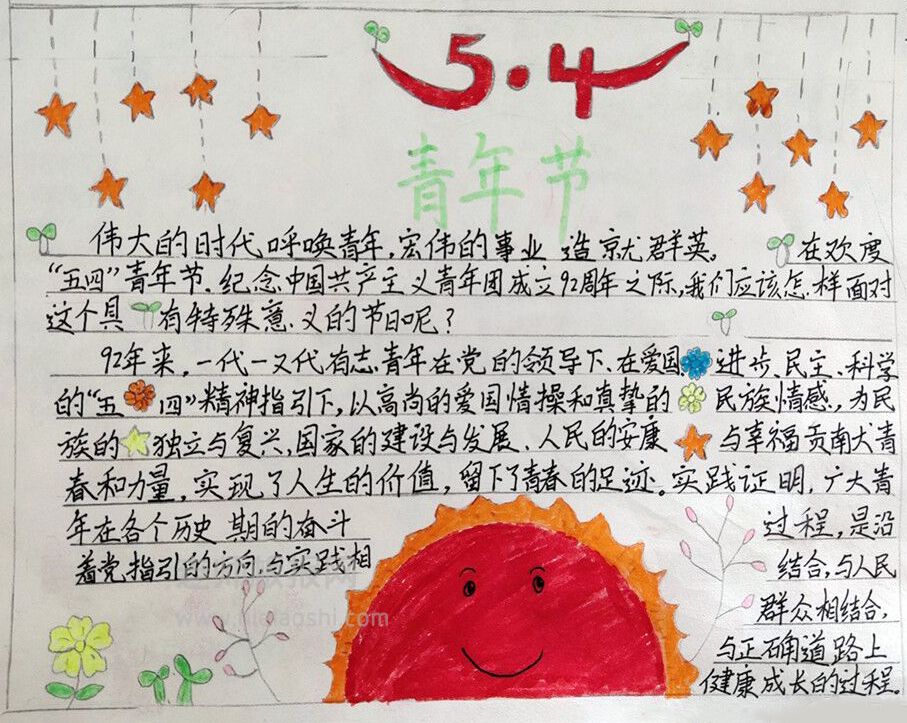 5.4
青年节
伟大的时代呼唤青年,宏伟的事业造就群英。在欢度
“五四”青年节.纪念中国共产主义青年团成立92周年之际,我们应该怎.样面对
这个具有特殊意.义的节日呢?
92年来,一代一又代有志青年在党的领导下、在爱国进步、民主、科学
的“五四”精神指引下,以高尚的爱国情操和真挚的民族情感.,为民
族的独立与复兴,国家的建设与发展、人民的安康与幸福贡献青
春和力量,实现了人生的价值,留下了青春的足迹。实践证明,广大青
年在各个历史期的奋斗过程,是沿
着党指引的方向.与实践相结合,与人民
群众相结合,
与正确道路上
健康成长的过程。